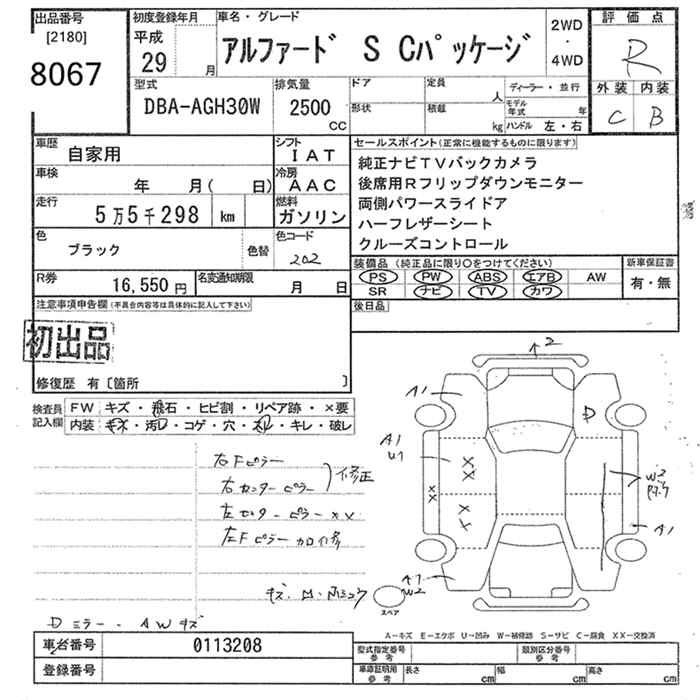 出品番号
[2180]
8067
初度登録年月
平成
29 月
車名・グレード
アルファード S Cパッケージ
2WD
・
4WD
評価点
R
外装 内装
C B
型式
DBA-AGH30W
排気量
2500
CC
ドア
形状
定員
人
積載
kg
ディーラー・並行
モデル年式 年
ハンドル 左・右
車歴
自家用
シフト
IAT
車検
年 月( 日)
冷房
AAC
走行
5万5千298 km
燃料
ガソリン
色
ブラック
色替
色コード
202
R券
16,550円
名変通知期限
月 日
セールスポイント(正常に機能するものに限ります)
純正ナビTVバックカメラ
後席用Rフリップダウンモニター
両側パワースライドア
ハーフレザーシート
クルーズコントロール
装備品(純正品に限り○をつけてください)
PS PW ABS エアB AW
SR ナビ TV カワ
新車保証書
有・無
後日品
注意事項申告欄(不具合内容等は具体的に記入して下さい)
初出品
修復歴 有〔箇所 〕
検査員記入欄
FW キズ・飛石・ヒビ割・リペア跡・×要
内装 キズ・汚れ・コゲ・穴・スレ・キレ・破レ
右Fピラー
右センターピラー
修正
左センターピラー XX
左Fピラー カロ修
Dミラー・AWキズ
A2
A1
D
A1
U1
XX
XX
XX
W2
A1
A1
W2
スペア
A-キズ E-エクボ U-凹み W-補修跡 S-サビ C-腐食 XX-交換済
車台番号
0113208
登録番号
型式指定番号
参考
類別区分番号
参考
車庫証明用
参考
長さ cm
幅 cm
高さ cm